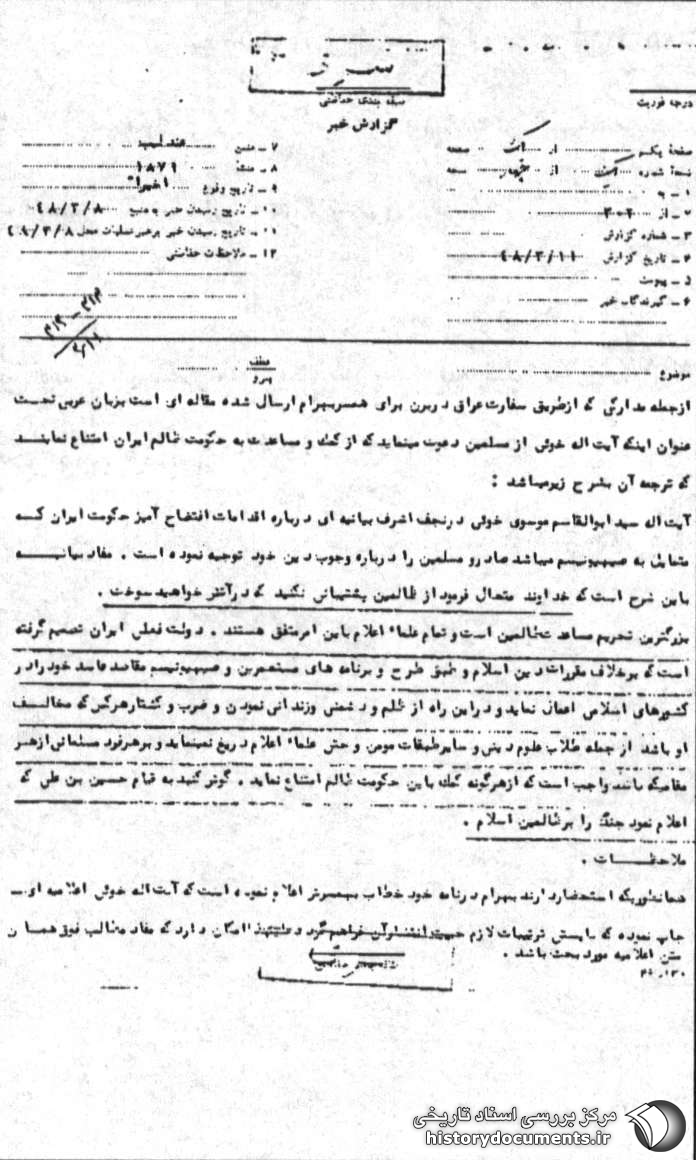 سری
طبقه بندی حفاظتی
درجه فوریت
گزارش خبر
صفحهٔ یکم از صفحه
نسخهٔ شماره از چهار صفحه
۱ ـ به
۲ ـ از ۲۰۲
۳ ـ شماره گزارش
۴ ـ تاریخ گزارش ۴۸/۳/۱۱
۵ ـ پیوست
۶ ـ گیرندگان خبر
۷ ـ منبع عندلیب
۸ ـ منشأ ۱۸۷۱
۹ ـ تاریخ وقوع اخیراً
۱۰ ـ تاریخ رسیدن خبر به منبع ۴۸/۳/۸
۱۱ ـ تاریخ رسیدن خبر برهبر عملیات محل ۴۸/۳/۸
۱۲ ـ ملاحظات حفاظتی
۳۱۲ ـ
موضوع
عطف
پیرو
ازجمله مدارکی که ازطریق سفارت عراق دربرن برای همسربهرام ارسال شده مقاله ای است بزبان عربی تحت
عنوان اینکه آیت اله خوئی از مسلمین دعوت مینماید که از کمک و مساعدت به حکومت ظالم ایران امتناع نمایند
که ترجمه آن بشرح زیرمیباشد :
آیت اله سید ابوالقاسم موسوی خوئی درنجف اشرف بیانیه ای درباره اقدامات افتضاح آمیز حکومت ایران که
متمایل به صیهونیسم میباشد صادرو مسلمین را درباره وجوب دین خود توجیه نموده است . مفاد بیانیه
باین شرح است که خداوند متعال فرمود از ظالمین پشتیبانی نکنید که درآتش خواهید سوخت .
بزرگترین تحریم مساعدت ظالمین است و تمام علماء اعلام باین امرمتفق هستند . دولت فعلی ایران تصمیم گرفته
است که برخلاف مقررات دین اسلام و طبق طرح و برنامه های مستعمرین و صیهونیسم مقاصد فاسد خود را در
کشورهای اسلامی اعمال نماید و دراین راه از ظلم و دشمنی وزندانی نمودن و ضرب و کشتارهرکس که مخالف
او باشد از جمله طلاب علوم دینی و سایرطبقات مومن و حتی علماء اعلام دریغ نمینماید و برهرفرد مسلمانی ازهر
مقامیکه باشد واجب است که ازهرگونه کمک باین حکومت ظالم امتناع نماید . گوش کنید به قیام حسین بن علی که
اعلام نمود جنگ را برظالمین اسلام .
ملاحظات .
همانطوریکه استحضاردارند بهرام درنامه خود خطاب بهمسرش اعلام نموده است که آیت اله خوئی اعلامیه ای
چاپ نموده که بایستی ترتیبات لازم جهت انتشارآن فراهم گردد امکان دارد که مفاد مطالب فوق همان
متن اعلامیه مورد بحث باشد .
مرکز بررسی اسناد تاریخی
historydocuments.ir